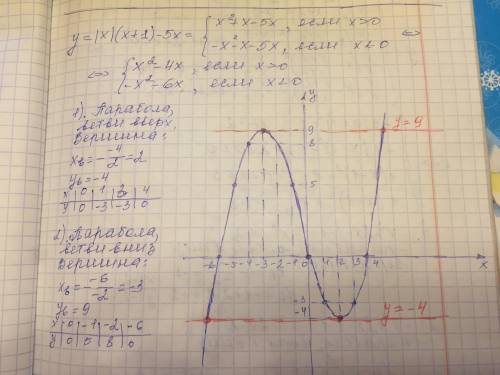 y=|x|(x+1)-5x= { x²+x-5x, если x>0
{ -x²-x-5x, если x<0 ⇔
⇔ { x²-4x, если x>0
{ -x²-6x, если x<0
1). Парабола,
ветви вверх.
Вершина:
xв=-\frac{-4}{2}=2
yв=-4
x | 0 | 1 | 3 | 4
y | 0 | -3 | -3 | 0
2). Парабола,
ветви вниз
Вершина:
xв=-\frac{-6}{-2}=-3
yв=9
x | 0 | -1 | -2 | -6
y | 0 | 5 | 8 | 0
y
9
y=9
8
5
-6 -5 -4 -3 -2 -1 0 1 2 3 4 x
-3
-4
y=-4